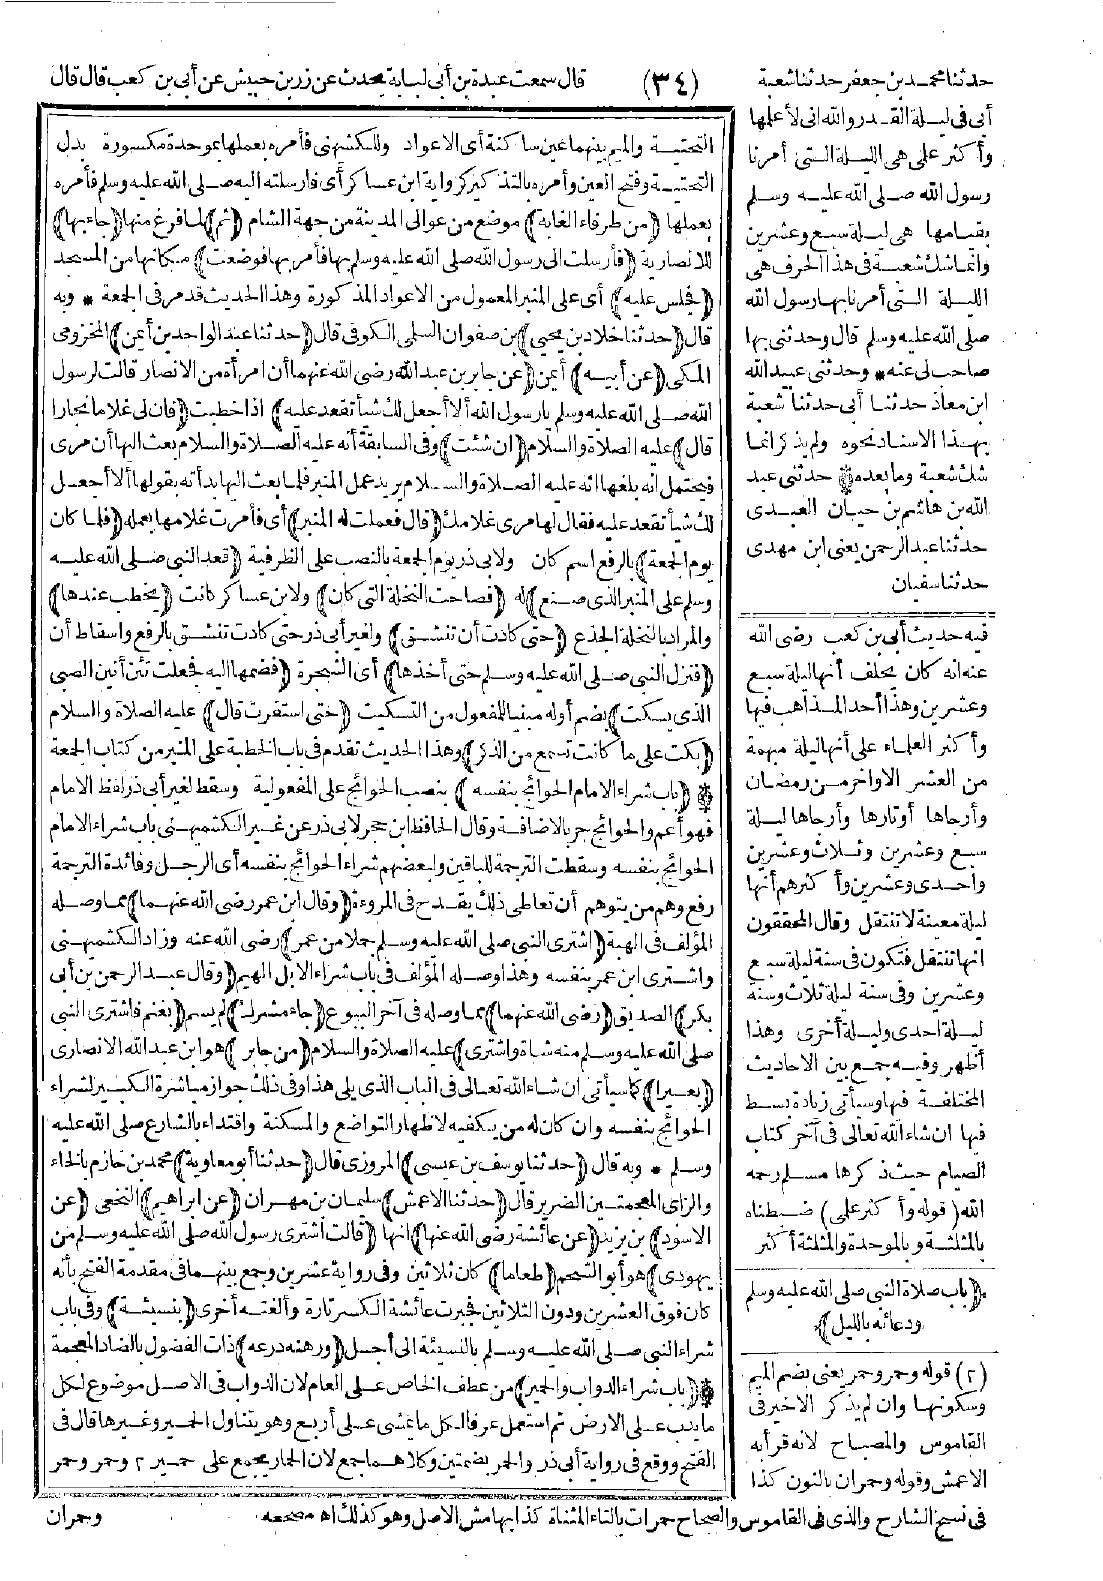 حدثنا محمد بن جعفر حدثنا شعبة (٣٤) قال سمعت عبدة بن أبي لبابة يحدث عن زر بن حبيش عن أبي بن كعب قال قال
أبي في ليلة القدر والله اني لأعلمها
وأكثر علمي هي الليلة التي أمرنا
رسول الله صلى الله عليه وسلم
بقيامها هي ليلة سبع وعشرين
وانما شك شعبة في هذا الحرف هي
الليلة التي أمرنا بها رسول الله
صلى الله عليه وسلم قال وحدثني بها
صاحب لي عنه * وحدثني عبيد الله
ابن معاذ حدثنا أبي حدثنا شعبة
بهذا الاسناد نحوه ولم يذكر انما
شك شعبة وما بعده * حدثني عبد
الله بن هاشم بن حيان العبدي
حدثنا عبد الرحمن يعني ابن مهدي
حدثنا سفيان
فيه حديث أبي بن كعب رضي الله
عنه انه كان يحلف أنها ليلة سبع
وعشرين وهذا أحد المذاهب فيها
وأكثر العلماء على أنها ليلة مبهمة
من العشر الاواخر من رمضان
وأرجاها أوتارها وأرجاها ليلة
سبع وعشرين وثلاث وعشرين
واحدى وعشرين وأكثرهم أنها
ليلة معينة لا تنتقل وقال المحققون
انها تنتقل فتكون في سنة ليلة سبع
وعشرين وفي سنة ليلة ثلاث وسنة
ليلة احدى وليلة أخرى وهذا
أظهر وفيه جمع بين الاحاديث
المختلفة فيها وسيأتي زيادة بسط
فيها ان شاء الله تعالى في آخر كتاب
الصيام حيث ذكرها مسلم رحمه
الله (قوله وأكثر علمي) ضبطناه
بالمثلثة وبالموحدة والمثلثة أكثر
*(باب صلاة النبي صلى الله عليه وسلم
ودعائه بالليل)*
(٢) قوله وحمر وحمر يعني بضم الميم
وسكونها وان لم يذكر الاخير في
القاموس والمصباح لانه قرأ به
الاعمش وقوله وحمران بالنون كذا
في نسخ الشارح والذي في القاموس والصحاح حمرات بالتاء المثناة كذا بهامش الاصل وهو كذلك اه مصححه
التحتية والميم بينهما عين ساكنة أي الاعواد وللكشميهني فأمره بعملها بموحدة مكسورة بدل
التحتية وفتح العين وأمره بالتذكير كرواية ابن عساكر أي فارسلته اليه صلى الله عليه وسلم فأمره
بعملها (من طرفاء الغابة) موضع من عوالي المدينة من جهة الشام (ثم) لما فرغ منها (جاء بها)
للانصارية (فأرسلت الى رسول الله صلى الله عليه وسلم بها فأمر بها فوضعت) مكانها من المسجد
(فجلس عليه) أي على المنبر المعمول من الاعواد المذكورة وهذا الحديث قد مر في الجمعة * وبه
قال (حدثنا خلاد بن يحيى) بن صفوان السلمي الكوفي قال (حدثنا عبد الواحد بن أيمن) المخزومي
المكي (عن أبيه) أيمن (عن جابر بن عبد الله رضي الله عنهما أن امرأة من الانصار قالت لرسول
الله صلى الله عليه وسلم يا رسول الله ألا أجعل لك شيأ تقعد عليه) اذا خطبت (فان لي غلاما نجارا
قال) عليه الصلاة والسلام (ان شئت) وفي السابقة أنه عليه الصلاة والسلام بعث اليها أن مري
فيحتمل انه بلغها انه عليه الصلاة والسلام يريد عمل المنبر فلما بعث اليها بدأته بقولها ألا أجعل
لك شيأ تقعد عليه فقال لها مري غلامك (قال فعملت له المنبر) أي فأمرت غلامها بعمله (فلما كان
يوم الجمعة) بالرفع اسم كان ولابي ذر يوم الجمعة بالنصب على الظرفية (قعد النبي صلى الله عليه
وسلم على المنبر الذي صنع) له (فصاحت النخلة التي كان) ولابن عساكر كانت (يخطب عندها)
والمراد بالنخلة الجذع (حتى كادت أن تنشق) ولغير أبي ذر حتى كادت تنشق بالرفع واسقاط أن
(فنزل النبي صلى الله عليه وسلم حتى أخذها) أي الشجرة (فضمها اليه فجعلت تئن أنين الصبي
الذي يسكت) بضم أوله مبنيا للمفعول من التسكيت (حتى استقرت قال) عليه الصلاة والسلام
(بكت على ما كانت تسمع من الذكر) وهذا الحديث تقدم في باب الخطبة على المنبر من كتاب الجمعة
* (باب شراء الامام الحوائج بنفسه) بنصب الحوائج على المفعولية وسقط لغير أبي ذر لفظ الامام
فهو أعم والحوائج جر بالاضافة وقال الحافظ ابن حجر لابي ذر عن غير الكشميهني باب شراء الامام
الحوائج بنفسه وسقطت الترجمة للباقين ولبعضهم شراء الحوائج بنفسه أي الرجل وفائدة الترجمة
رفع وهم من يتوهم أن تعاطي ذلك يقدح في المروءة (وقال ابن عمر رضي الله عنهما) مما وصله
المؤلف في الهبة (اشترى النبي صلى الله عليه وسلم جملا من عمر) رضي الله عنه وزاد الكشميهني
واشترى ابن عمر بنفسه وهذا وصله المؤلف في باب شراء الابل الهيم (وقال عبد الرحمن بن أبي
بكر) الصديق (رضي الله عنهما) مما وصله في آخر البيوع (جاء مشرك) لم يسم (بغنم فاشترى النبي
صلى الله عليه وسلم منه شاة واشترى) عليه الصلاة والسلام (من جابر) هو ابن عبد الله الانصاري
(بعيرا) كما سيأتي ان شاء الله تعالى في الباب الذي يلي هذا وفي ذلك جواز مباشرة الكبير لشراء
الحوائج بنفسه وان كان له من يكفيه لاظهار التواضع والمسكنة واقتداء بالشارع صلى الله عليه
وسلم * وبه قال (حدثنا يوسف بن عيسى) المروزي قال (حدثنا أبو معاوية) محمد بن خازم بالخاء
والزاي المعجمتين الضرير قال (حدثنا الاعمش) سليمان بن مهران (عن ابراهيم) النخعي (عن
الاسود) بن يزيد (عن عائشة رضي الله عنها) انها (قالت اشترى رسول الله صلى الله عليه وسلم من
يهودي) هو أبو الشحم (طعاما) كان ثلاثين وفي رواية عشرين وجمع بينهما في مقدمة الفتح بأنه
كان فوق العشرين ودون الثلاثين فجبرت عائشة الكسر تارة وألغته أخرى (بنسيئة) وفي باب
شراء النبي صلى الله عليه وسلم بالنسيئة الى أجل (ورهنه درعه) ذات الفضول بالضاد المعجمة
* (باب شراء الدواب والحمير) من عطف الخاص على العام لان الدواب في الاصل موضوع لكل
ما يدب على الارض ثم استعمل عرفا لكل ما يمشي على أربع وهو يتناول الحمير وغيرها قال في
الفتح ووقع في رواية أبي ذر والحمر بضمتين وكلاهما جمع لان الحمار يجمع على حمير ٢ وحمر وحمر
وحمران